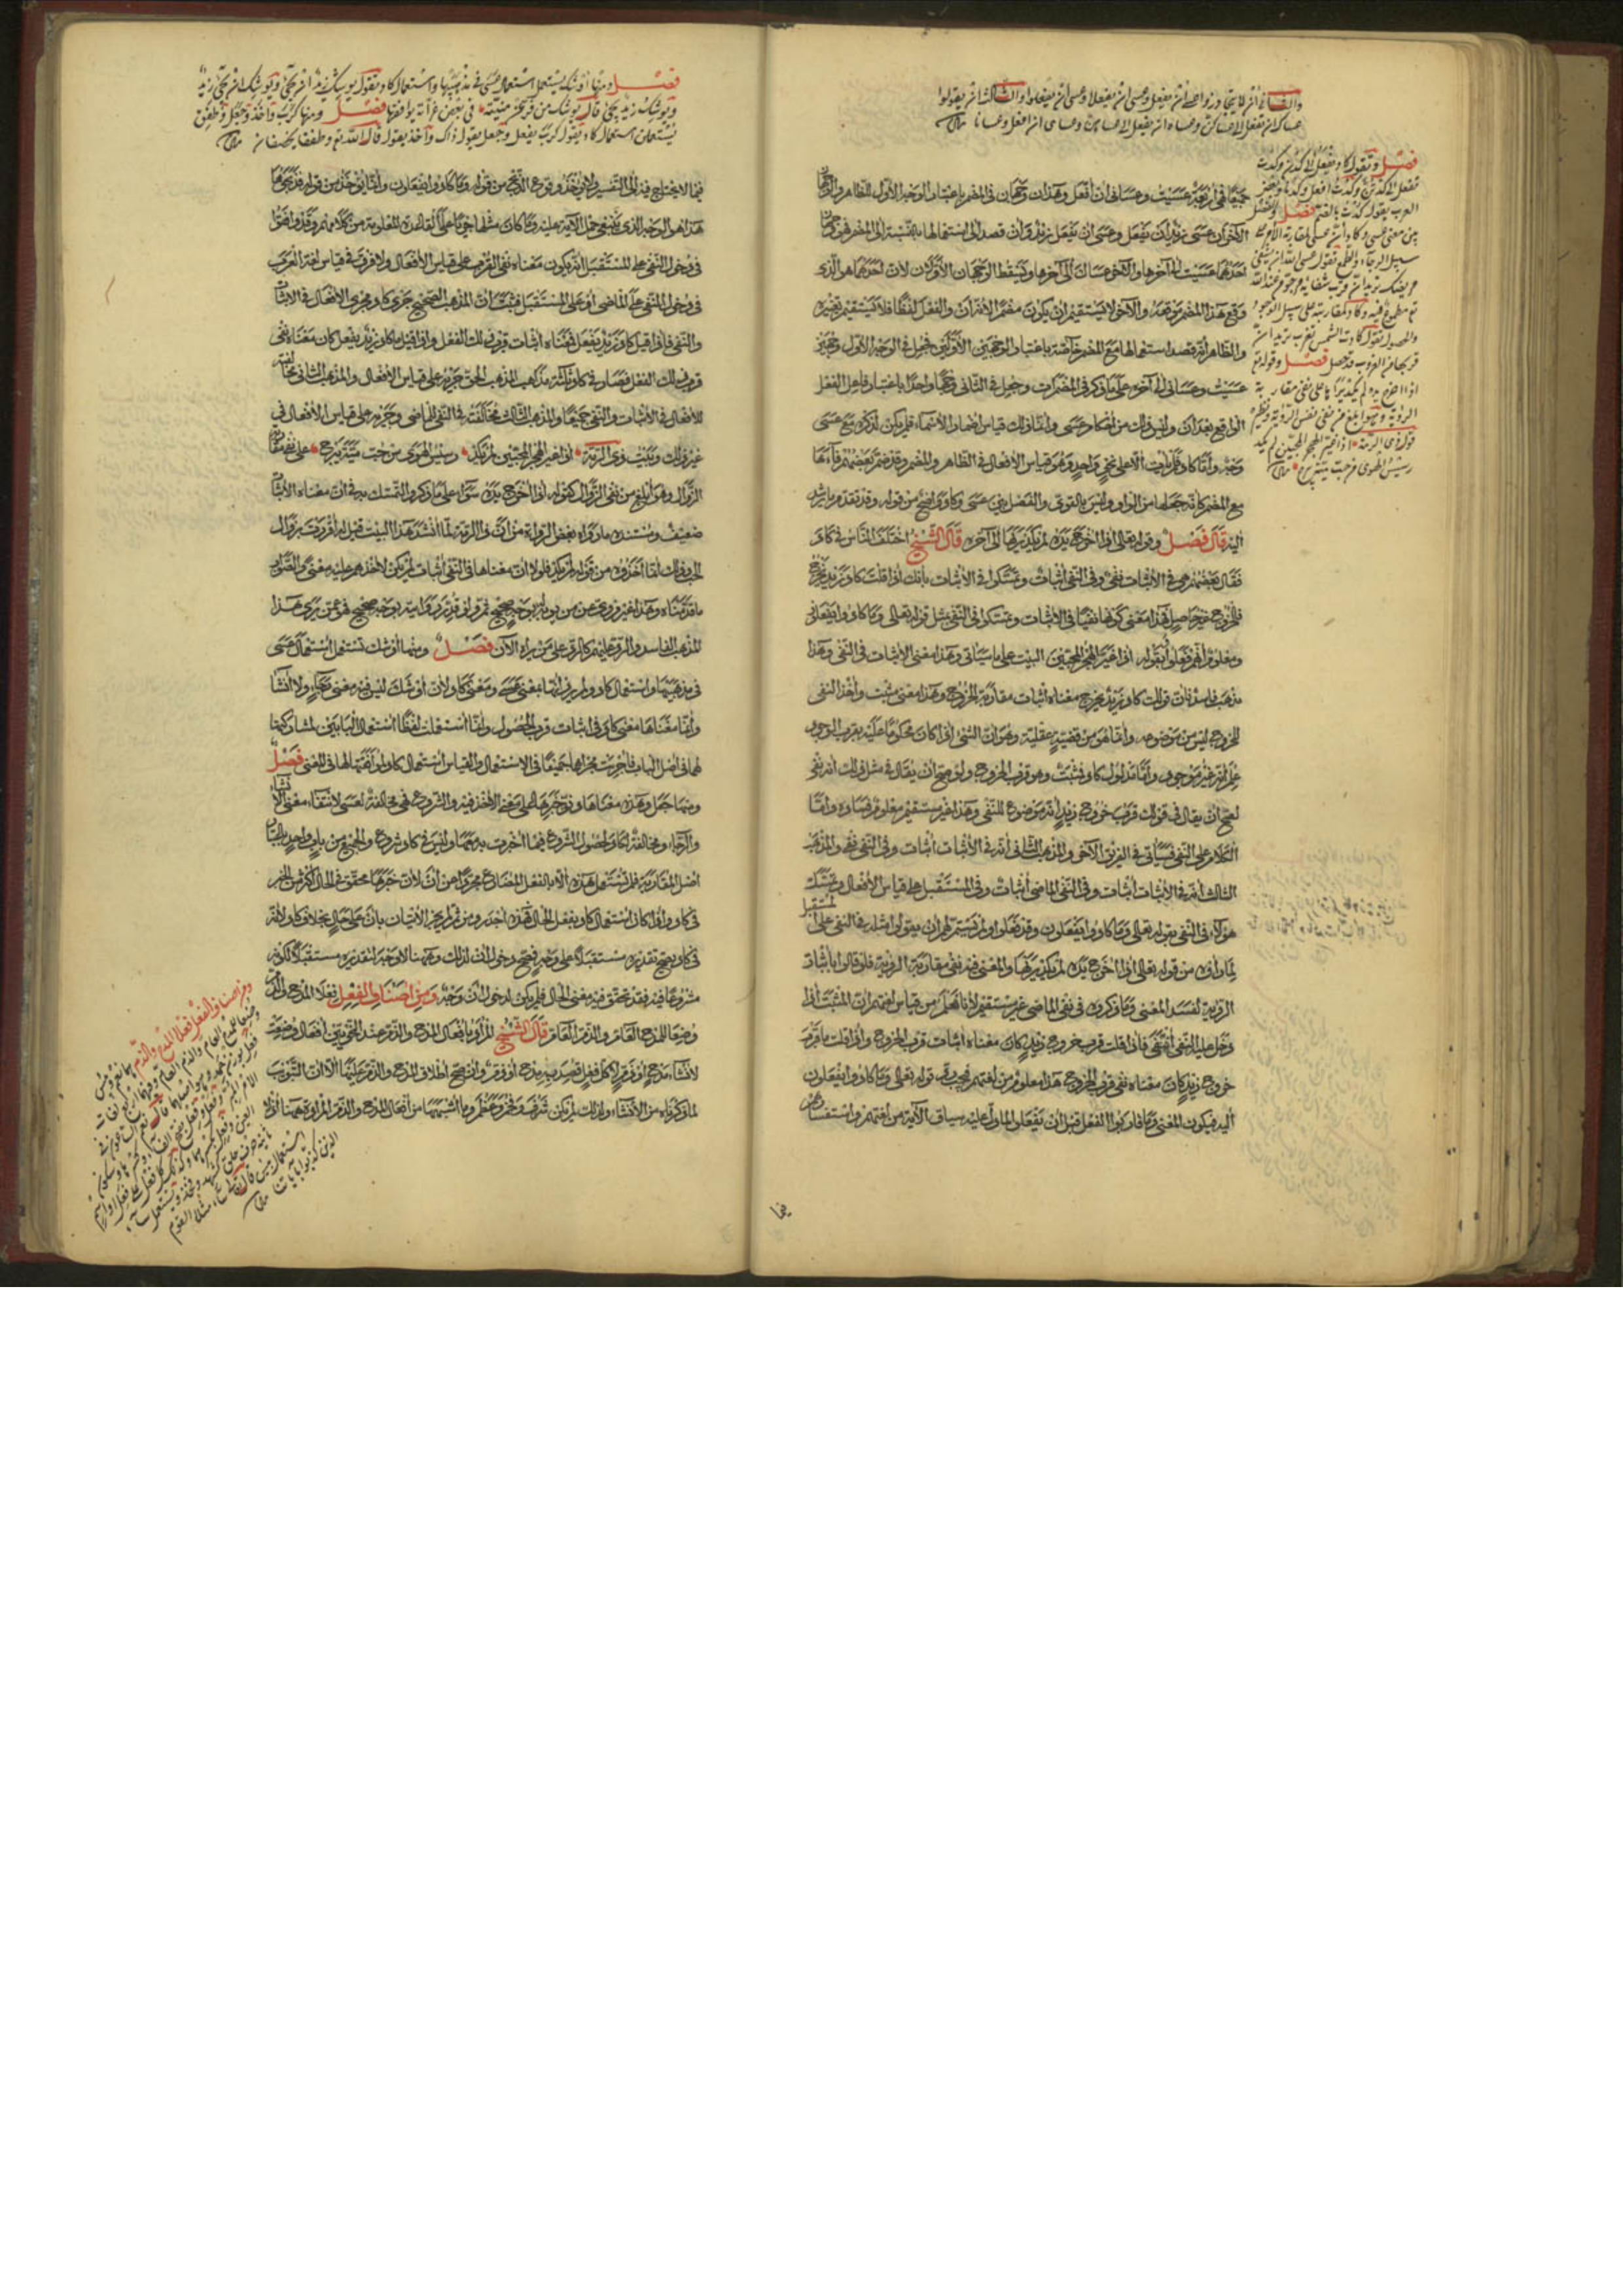 والثاني أن لا يتجاوزوا عسى أن يفعل وعسى أن يفعلا وعسى أن يفعلوا والثالث أن يقولوا
عساك أن تفعل إلى عساكن وعساه أن يفعل إلى عساهن وعساني أن أفعل وعسانا
فصل وتقول كاد يفعل إلى كدن وكدت
تفعل إلى كدتن وكدت أفعل وكدنا وبعض
العرب يقول كدت بالضم فصل والفصل
بين معنى عسى وكاد أن عسى لمقاربة الأمر على
سبيل الرجاء والطمع تقول عسى الله أن يشفي
مريضك تريد أن قرب شفائه مرجو من عند الله
تع مطموع فيه وكاد لمقاربته على سبيل الوجود
والحصول تقول كادت الشمس تغرب تريد أن
قربها من الغروب قد حصل فصل وقوله تع
إذا أخرج يده لم يكد يراها على نفي مقاربة
الرؤية وهو أبلغ من نفي نفس الرؤية ونظيره
قول ذي الرمة إذا غير الهجر المحبين لم يكد
رسيس الهوى من حب مية يبرح
جميعا في أربعة عسيت وعساني أن أفعل وهذان وجهان في المضمر باعتبار الوجه الأول للظاهر والوجهان
الآخران عسى زيد أن يفعل وعسى أن يفعل زيد وأن قصد إلى استعمالها بالنسبة إلى المضمر فهي وجهان
أحدهما عسيت إلى آخرها والآخر عساك إلى آخرها ويسقط الوجهان الأولان لأن أحدهما هو الذي
وقع هذا المضمر موقعه والآخر لا يستقيم أن يكون مضمرا لأنه أن والفعل لفظا فلا يستقيم تغييره
والظاهر أنه قصد استعمالها مع المضمر خاصة باعتبار الوجهين الأولين فجعل في الوجه الأول وجهين
عسيت وعساني إلى آخره على ما ذكر في المضمرات وجعل في الثاني وجها واحدا باعتبار فاعل الفعل
الواقع بعد أن وليس ذلك من أحكام عسى وإنما ذلك قياس إضمار الأسماء فلم يكن لذكره مع عسى
وجه وأما كاد فلم يأت إلا على نحو واحد وهو قياس الأفعال في الظاهر والمضمر وقد ضم بعضهم فاءها
مع المضمر كأنه جعلها من الواو وليس بالقوي والفصل بين عسى وكاد واضح من قوله وقد تقدم ما يرشد
إليه قال فصل وقوله تعالى إذا أخرج يده لم يكد يراها إلى آخره قال الشيخ اختلف الناس في كاد
فقال بعضهم هي في الإثبات نفي وفي النفي إثبات وتمسكوا في الإثبات بأنك إذا قلت كاد زيد يخرج
فالخروج غير حاصل فهذا معنى كونها نفيا في الإثبات وتمسكوا في النفي بمثل قوله تعالى وما كادوا يفعلون
ومعلوم أنهم فعلوا وبقوله إذا غير الهجر المحبين البيت على ما سيأتي وهذا معنى الإثبات في النفي وهذا
مذهب فاسد فإن قولك كاد زيد يخرج معناه إثبات مقاربة الخروج وهذا معنى مثبت وأخذ النفي
للخروج ليس من موضوعه وإنما هو من قضية عقلية وهو أن الشيء إذا كان محكوما عليه بقرب الوجود
علم أنه غير موجود وأما مدلول كاد فمثبت وهو قرب الخروج ولو صح أن يقال في مثل ذلك أنه نفي
لصح أن يقال في قولك قرب خروج زيد أنه موضوع للنفي وهذا غير مستقيم معلوم فساده وأما
الكلام على النفي فسيأتي في الفريق الآخر والمذهب الثاني أنه في الإثبات إثبات وفي النفي نفي والمذهب
الثالث أنه في الإثبات إثبات وفي النفي الماضي إثبات وفي المستقبل على قياس الأفعال وتمسك
هؤلاء في النفي بقوله تعالى وما كادوا يفعلون وقد فعلوا ولم يستمر لهم أن يقولوا مثله في النفي على المستقبل
لما رأوه من قوله تعالى إذا أخرج يده لم يكد يراها والمعنى فيه نفي مقاربة الرؤية فلو قالوا بإثبات
الرؤية لفسد المعنى وما ذكروه في نفي الماضي غير مستقيم لأنا نعلم من قياس لغتهم أن المثبت إذا
دخل عليه النفي انتفى فإذا قلت قرب خروج زيد كان معناه إثبات قرب الخروج وإذا قلت ما قرب
خروج زيد كان معناه نفي قرب الخروج هذا معلوم من لغتهم فيجب في قوله تعالى وما كادوا يفعلون
إليه فيكون المعنى وما قاربوا الفعل قبل أن يفعلوا لما دل عليه سياق الآية من تعنتهم واستفسارهم
فيما
فصل ومنها أوشك يستعمل استعمال عسى في مذهبيها واستعمال كاد تقول يوشك زيد أن يجيء ويوشك أن يجيء زيد
ويوشك زيد يجيء قال يوشك من فر من منيته في بعض غراته يوافقها فصل ومنها كرب وأخذ وجعل وطفق
يستعملن استعمال كاد تقول كرب يفعل وجعل يقول ذاك وأخذ يقول قال الله تع وطفقا يخصفان
فيما لا يحتاج فيه إلى التفسير ولا يؤخذ وقوع الذبح من قوله وما كادوا يفعلون وإنما يؤخذ من قوله فذبحوها
هذا هو الوجه الذي ينبغي حمل الآية عليه وما كان مثلها جريا على القاعدة المعلومة من كلامهم وقد وافقوا
في دخول النفي على المستقبل أنه يكون معناه نفي القرب على قياس الأفعال ولا فرق في قياس لغة العرب
في دخول النفي على الماضي أو على المستقبل فثبت أن المذهب الصحيح جري كاد مجرى الأفعال في الإثبات
والنفي فإذا قيل كاد زيد يفعل فمعناه إثبات قرب ذلك الفعل وإذا قيل ما كاد زيد يفعل كان معناه نفي
قرب ذلك الفعل فصار في كاد ثلاثة مذاهب المذهب الحق جريه على قياس الأفعال والمذهب الثاني مخالفته
للأفعال في الإثبات والنفي جميعا والمذهب الثالث مخالفته في النفي للماضي وجريه على قياس الأفعال في
غير ذلك وبيت ذي الرمة إذا غير الهجر المحبين لم يكد رسيس الهوى من حب مية يبرح على نفي مقاربة
الزوال وهو أبلغ من نفي الزوال كقوله إذا أخرج يده سواء على ما ذكر والتمسك به في أن معناه الإثبات
ضعيف ومستنده ما رواه بعض الرواة من أن ذا الرمة لما أنشد هذا البيت قيل له أقررت بزوال
الحب وذلك إنما أخذوه من قوله لم يكد فلولا أن معناها في النفي إثبات لم يكن لأخذهم عليه معنى والصواب
ما قدمناه وهذا غير مروي عن من يؤبه له بوجه صحيح ثم ولو قدر روايته بوجه صحيح فهو عمن يرى هذا
المذهب الفاسد والرد عليهم كالرد على من يراه الآن فصل ومنها أوشك تستعمل استعمال عسى
في مذهبيها واستعمال كاد ولم يرد أنها بمعنى عسى ومعنى كاد لأن أوشك ليس فيه معنى رجاء ولا إنشاء
وإنما معناها معنى كاد في إثبات قرب الحصول وإنما استعملت لفظا استعمال البابين لمشاركتها
لهما في أصل الباب فأجريت مجراهما جميعا في الاستعمال والقياس استعمال كاد لموافقتها لها في المعنى فصل
ومنها جعل وهذه معناها دنو خبرها على معنى الأخذ فيه والشروع فهي مخالفة لعسى لانتفاء معنى الإنشاء
والرجاء ومخالفة لكاد لحصول الشروع فيما أخبرت به عنها وليس في كاد شروع والجميع من باب واحد باعتبار
أصل المقاربة فلم تستعمل هذه إلا بالفعل المضارع مجردا من أن لأن خبرها محقق في الحال أكثر من الخبر
في كاد وإذا كان استعمال كاد بفعل الحال فهذه أجدر ومن ثم لم يجز الإتيان بأن على حال بخلاف كاد لأنه
في كاد يصح تقديره مستقبلا على وجه فصح دخول أن لذلك وههنا لا وجه لتقديره مستقبلا لكونه
مشروعا فيه فقد تحقق فيه معنى الحال فلم يكن لدخول أن وجه ومن أصناف الفعل فعلا المدح والذم
وضعا للمدح العام والذم العام قال الشيخ المراد بأفعال المدح والذم عند النحويين أفعال وضعت
لإنشاء مدح أو ذم لا كل فعل قصد به مدح أو ذم وأن يصح إطلاق المدح والذم عليها إلا أن التبويب
لما ذكرناه من الإنشاء ولذلك لم يكن شرف وفخر وعظم وما أشبهها من أفعال المدح والذم المرادة ههنا
ومن أصناف الفعل فعلا المدح والذم هما نعم وبئس
وضعا للمدح العام والذم العام وفيهما أربع لغات